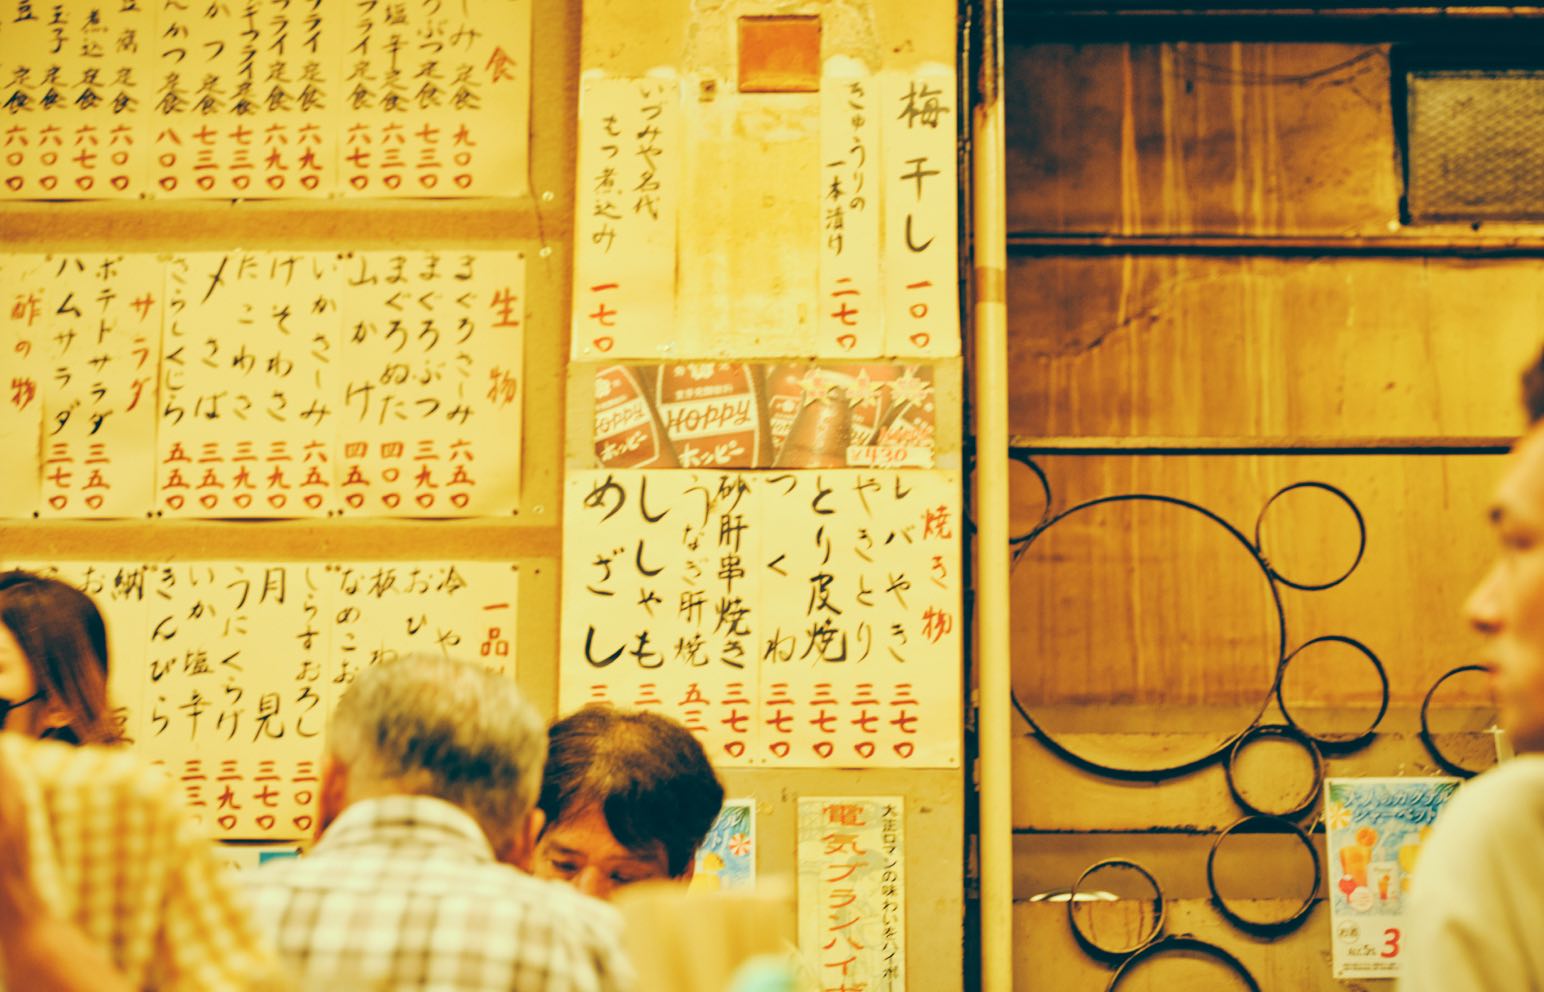 食
み定食 九〇〇
ぶつ定食 七三〇
塩辛定食 六三〇
フライ定食 六七〇
フライ定食 六九〇
フライ定食 六九〇
フライ定食 七三〇
かつ定食 七三〇
んかつ定食 八〇〇
豆腐定食 六〇〇
煮込定食 六七〇
玉子定食 六〇〇
豆定食 六〇〇
梅干し 一〇〇
きゅうりの
一本漬け 二七〇
いづみや名代
もつ煮込み 一七〇
生物
まぐろさしみ 六五〇
まぐろぶつ 三九〇
まぐろぬた 四〇〇
山かけ 四五〇
いかさしみ 六五〇
げそわさ 三九〇
たこわさ 三九〇
〆さば 五五〇
さらしくじら 五五〇
サラダ
ポテトサラダ 三五〇
ハムサラダ 三七〇
酢の物
HOPPY
ホッピー
HOPPY
ホッピー
¥430
焼き物
レバやき 三七〇
やきとり 三七〇
とり皮焼 三七〇
つくね 三七〇
砂肝串焼き 三七〇
うなぎ肝焼 五三
ししゃも 三
めざし 三
一品
冷や
おひ
板わ
なめこお
しらすおろし 三〇〇
月見 三七〇
うにくらげ 三九〇
いか塩辛 三三
きんぴら
納豆
お
大正ロマンの味わいをハイボー
電気ブランハイボ
大人のカクテル
シャーベット
お酒
ALC5%
3